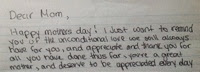 Dear Mom,
Happy mothers day! I just want to remind
you of the unconditional love we will always
have for you, and appreciate and thank you for
all you have done thus far, you're a great
mother, and deserve to be appreciated every day